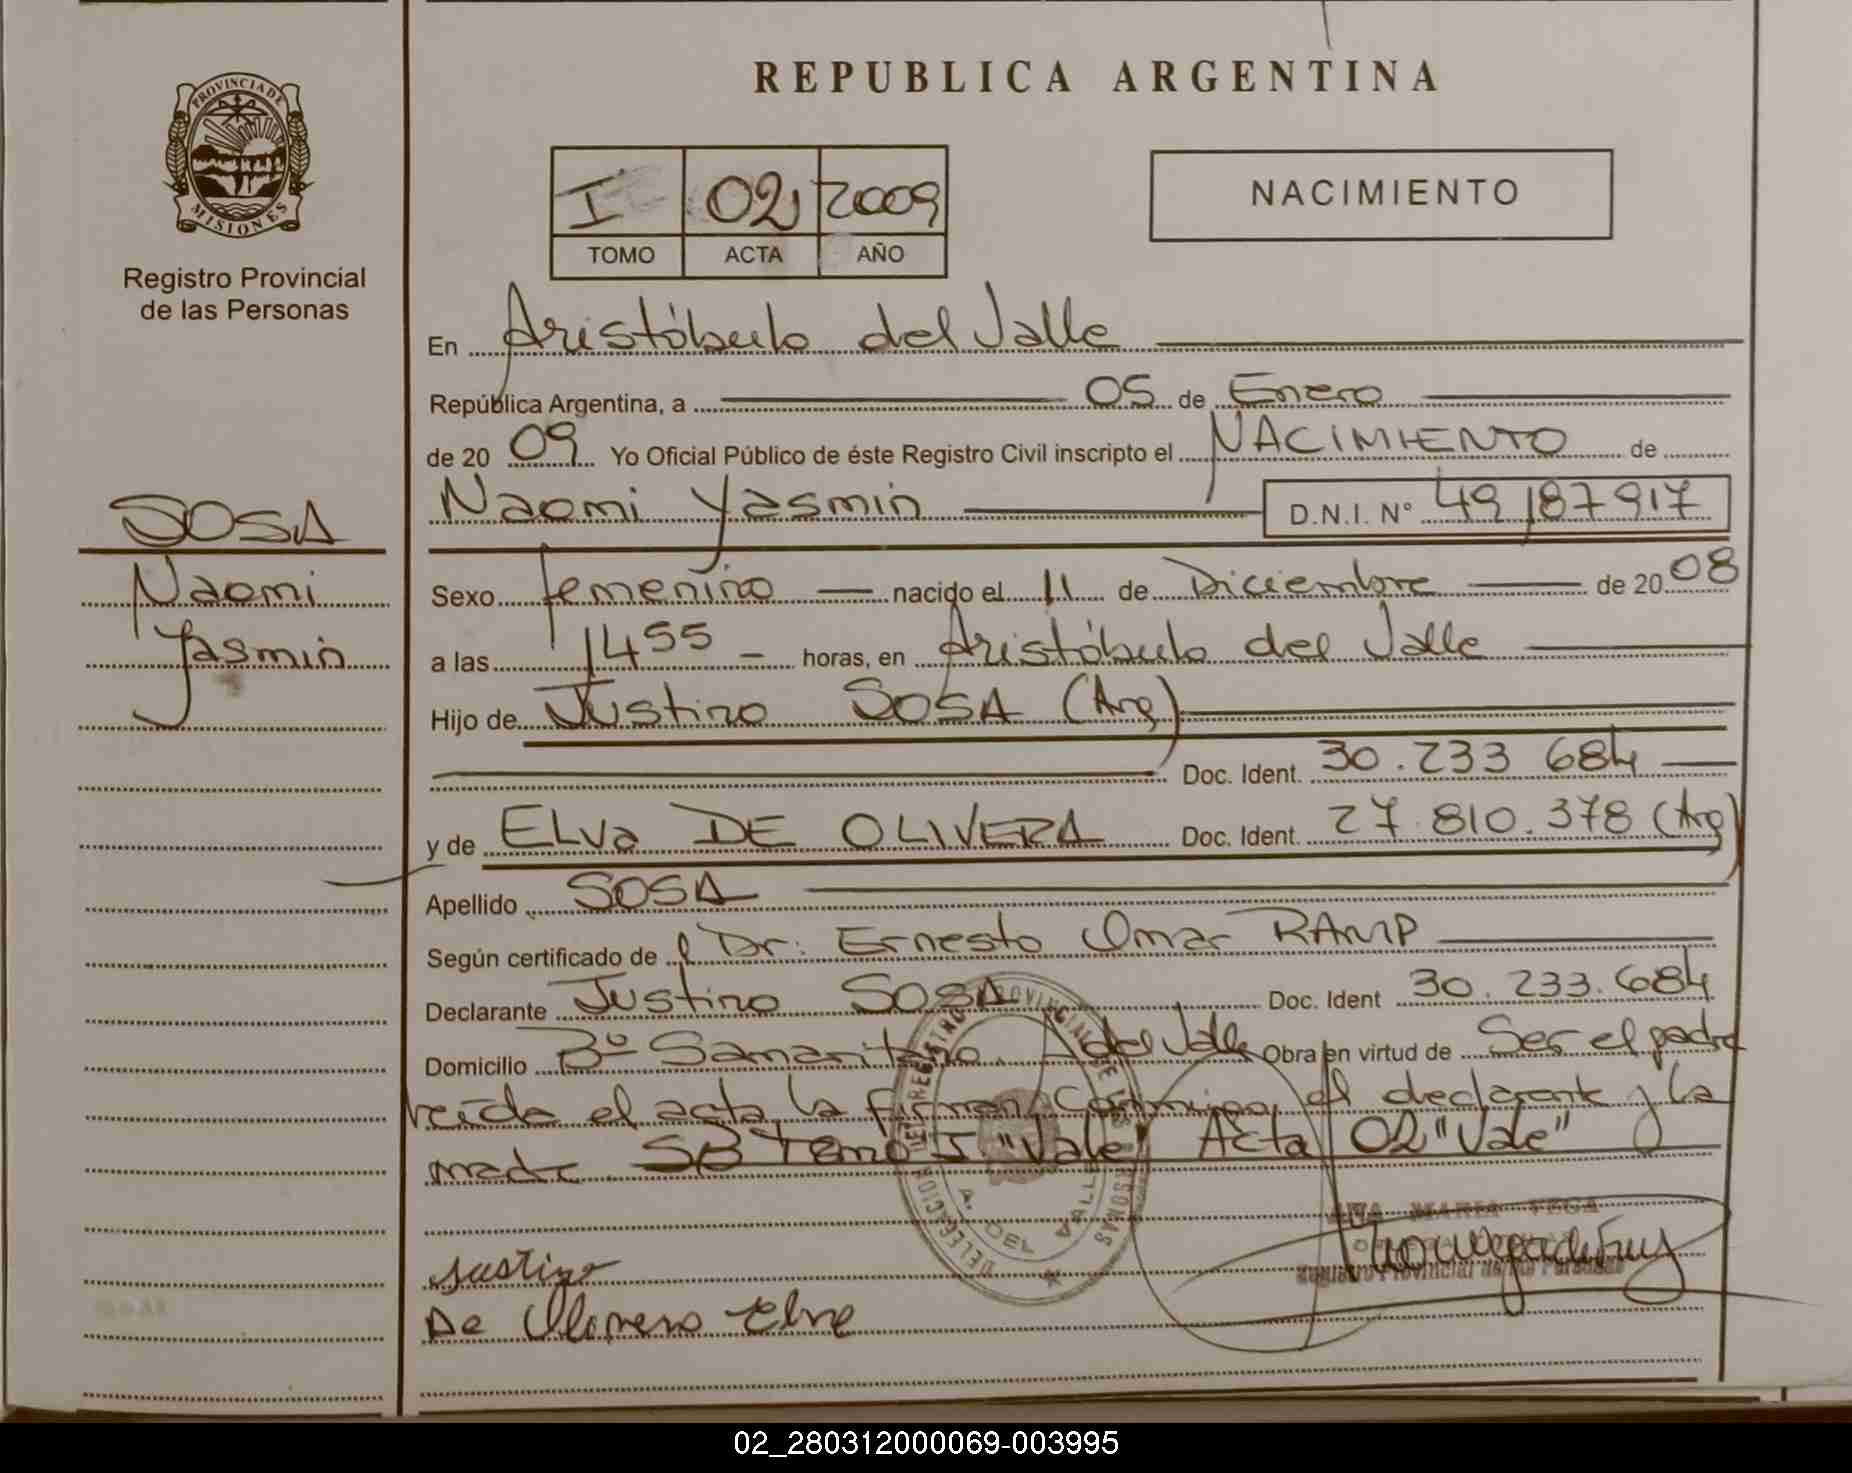 REPUBLICA ARGENTINA
PROVINCIA DE
MISIONES
Registro Provincial
de las Personas
I 02 2009
TOMO ACTA AÑO
NACIMIENTO
En Aristóbulo del Valle
República Argentina, a 05 de Enero
de 20 09 Yo Oficial Público de éste Registro Civil inscripto el NACIMIENTO de
SOSA
Naomi
Yasmin
Naomi Yasmin D.N.I. Nº 49187917
Sexo femenino nacido el 11 de Diciembre de 20 08
a las 14 55 horas, en Aristóbulo del Valle
Hijo de Justino SOSA (Arg)
Doc. Ident. 30.233 684
y de ELVa DE OLIVERA Doc. Ident. 27.810.378 (Arg)
Apellido SOSA
Según certificado de l Dr: Ernesto Omar RAMP
Declarante Justino SOSA Doc. Ident 30.233.684
Domicilio Bº Samaritano. A del Valle Obra en virtud de Ser el padre
leída el acta la firman conmigo, el declarante y la
madre. SB Tomo I "Vale" Acta 02 "Vale"
DELEGACION REGISTRO PROVINCIAL DE LAS PERSONAS
A. DEL VALLE
ANA MARIA VEGA
Registro Provincial de las Personas
Justino
De Olivera Elva
02_280312000069-003995